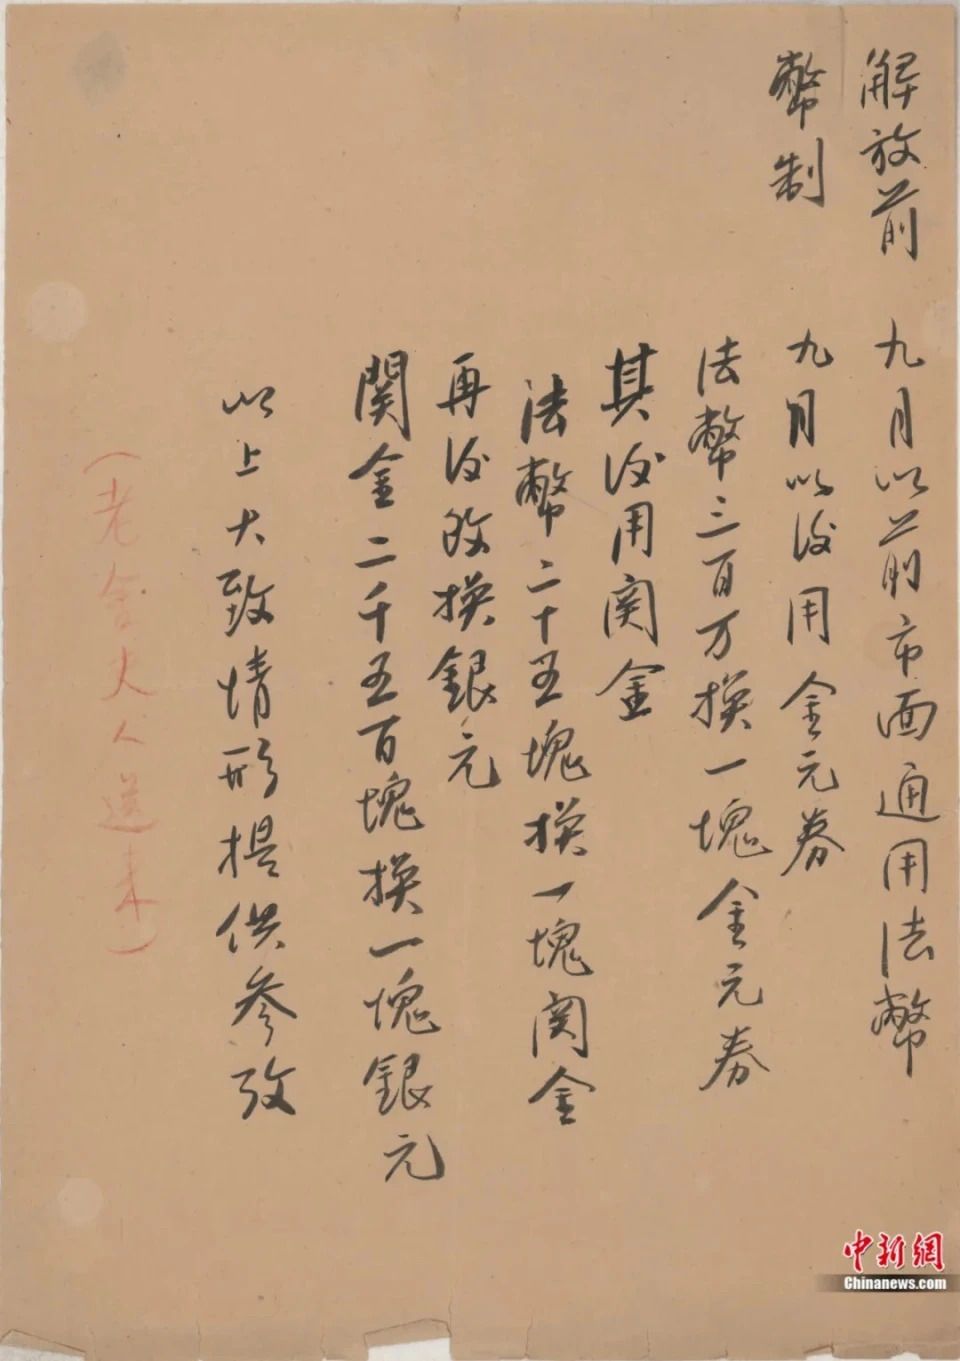 解放前
幣制
九月以前市面通用法幣
九月以後用金元券
法幣三百万換一塊金元券
其後用関金
法幣二十五塊換一塊関金
再後改換銀元
関金二千五百塊換一塊銀元
以上大致情形提供参攷
(老舍夫人送来)
中新網
Chinanews.com